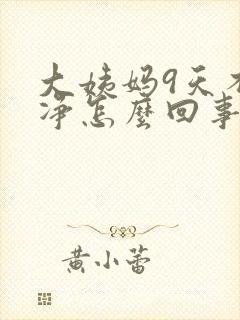 大姨妈9天不
净怎麽回事
黄小蕾